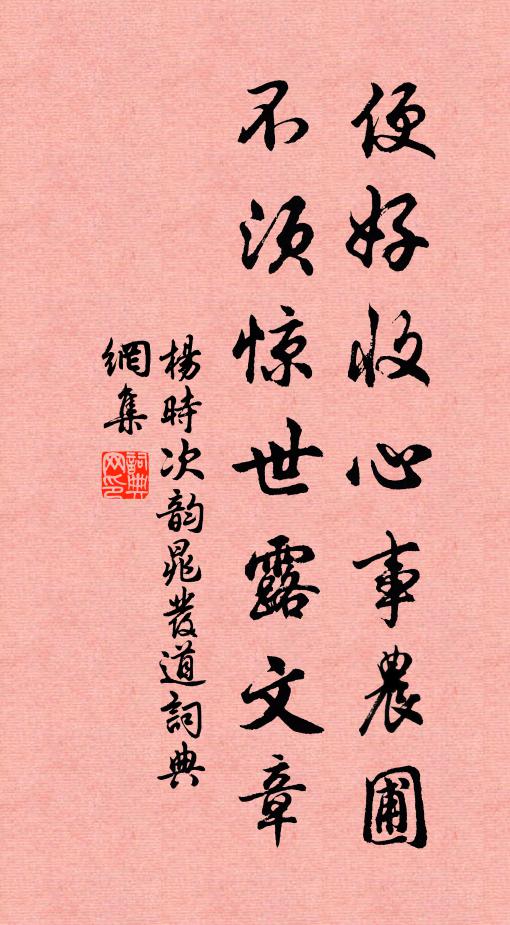 便好收心事農圃
不須惊世露文章
楊時次韵晁發道詞典
網集
詞典网印